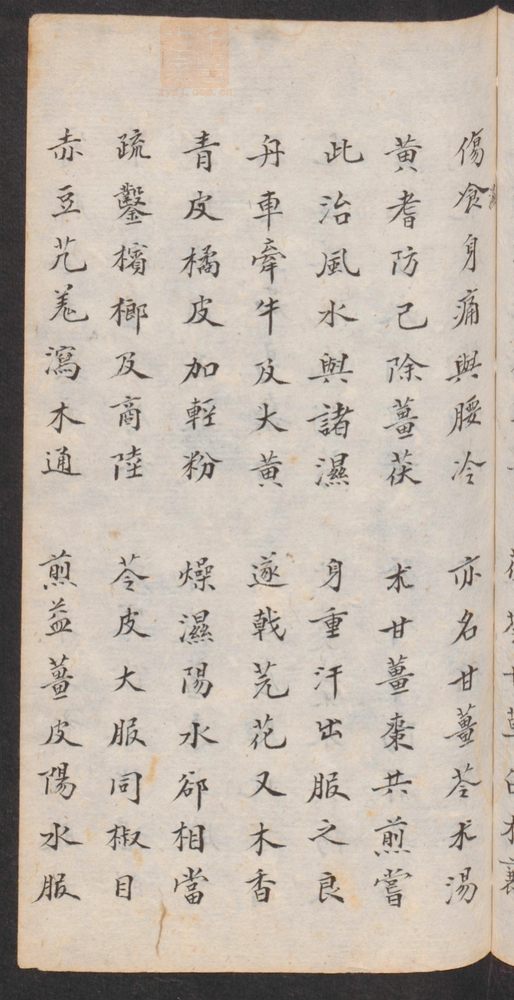 傷飡身痛與腰冷 亦名甘薑苓朮湯
黃耆防己除薑茯 朮甘薑棗共煎嘗
此治風水與諸濕 身重汗出服之良
舟車牽牛及大黃 遂戟芫花又木香
青皮橘皮加輕粉 燥濕陽水卻相當
疏鑿檳榔及商陸 苓皮大服同椒目
赤豆艽羗瀉木通 煎益薑皮陽水服